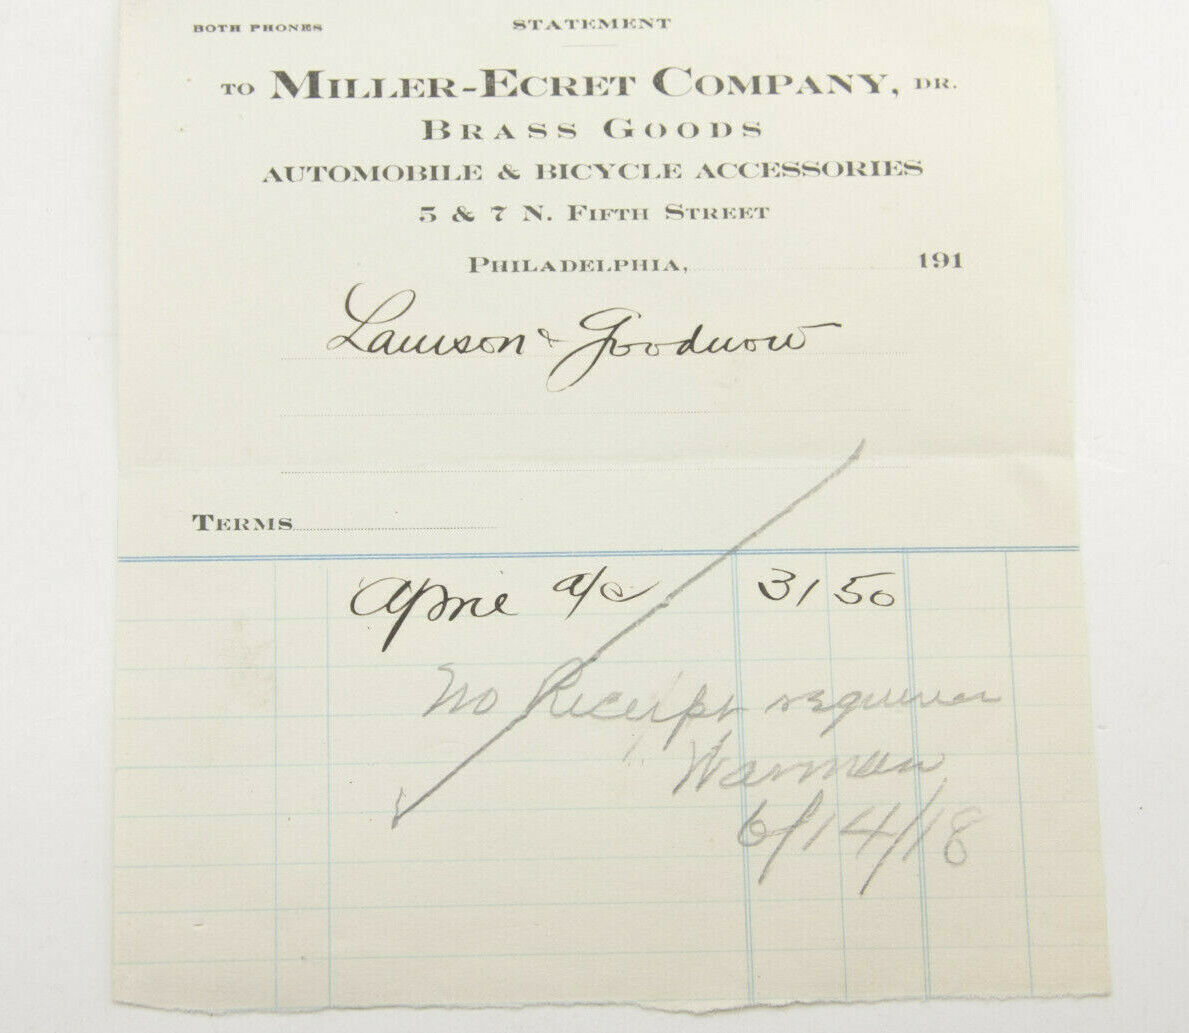 BOTH PHONES
STATEMENT
TO MILLER-ECRET COMPANY, DR.
BRASS GOODS
AUTOMOBILE & BICYCLE ACCESSORIES
5 & 7 N. FIFTH STREET
PHILADELPHIA, 191
Lawson & Goodnow
TERMS
a/c 31 50
No Receipt required
Warman
6/14/18